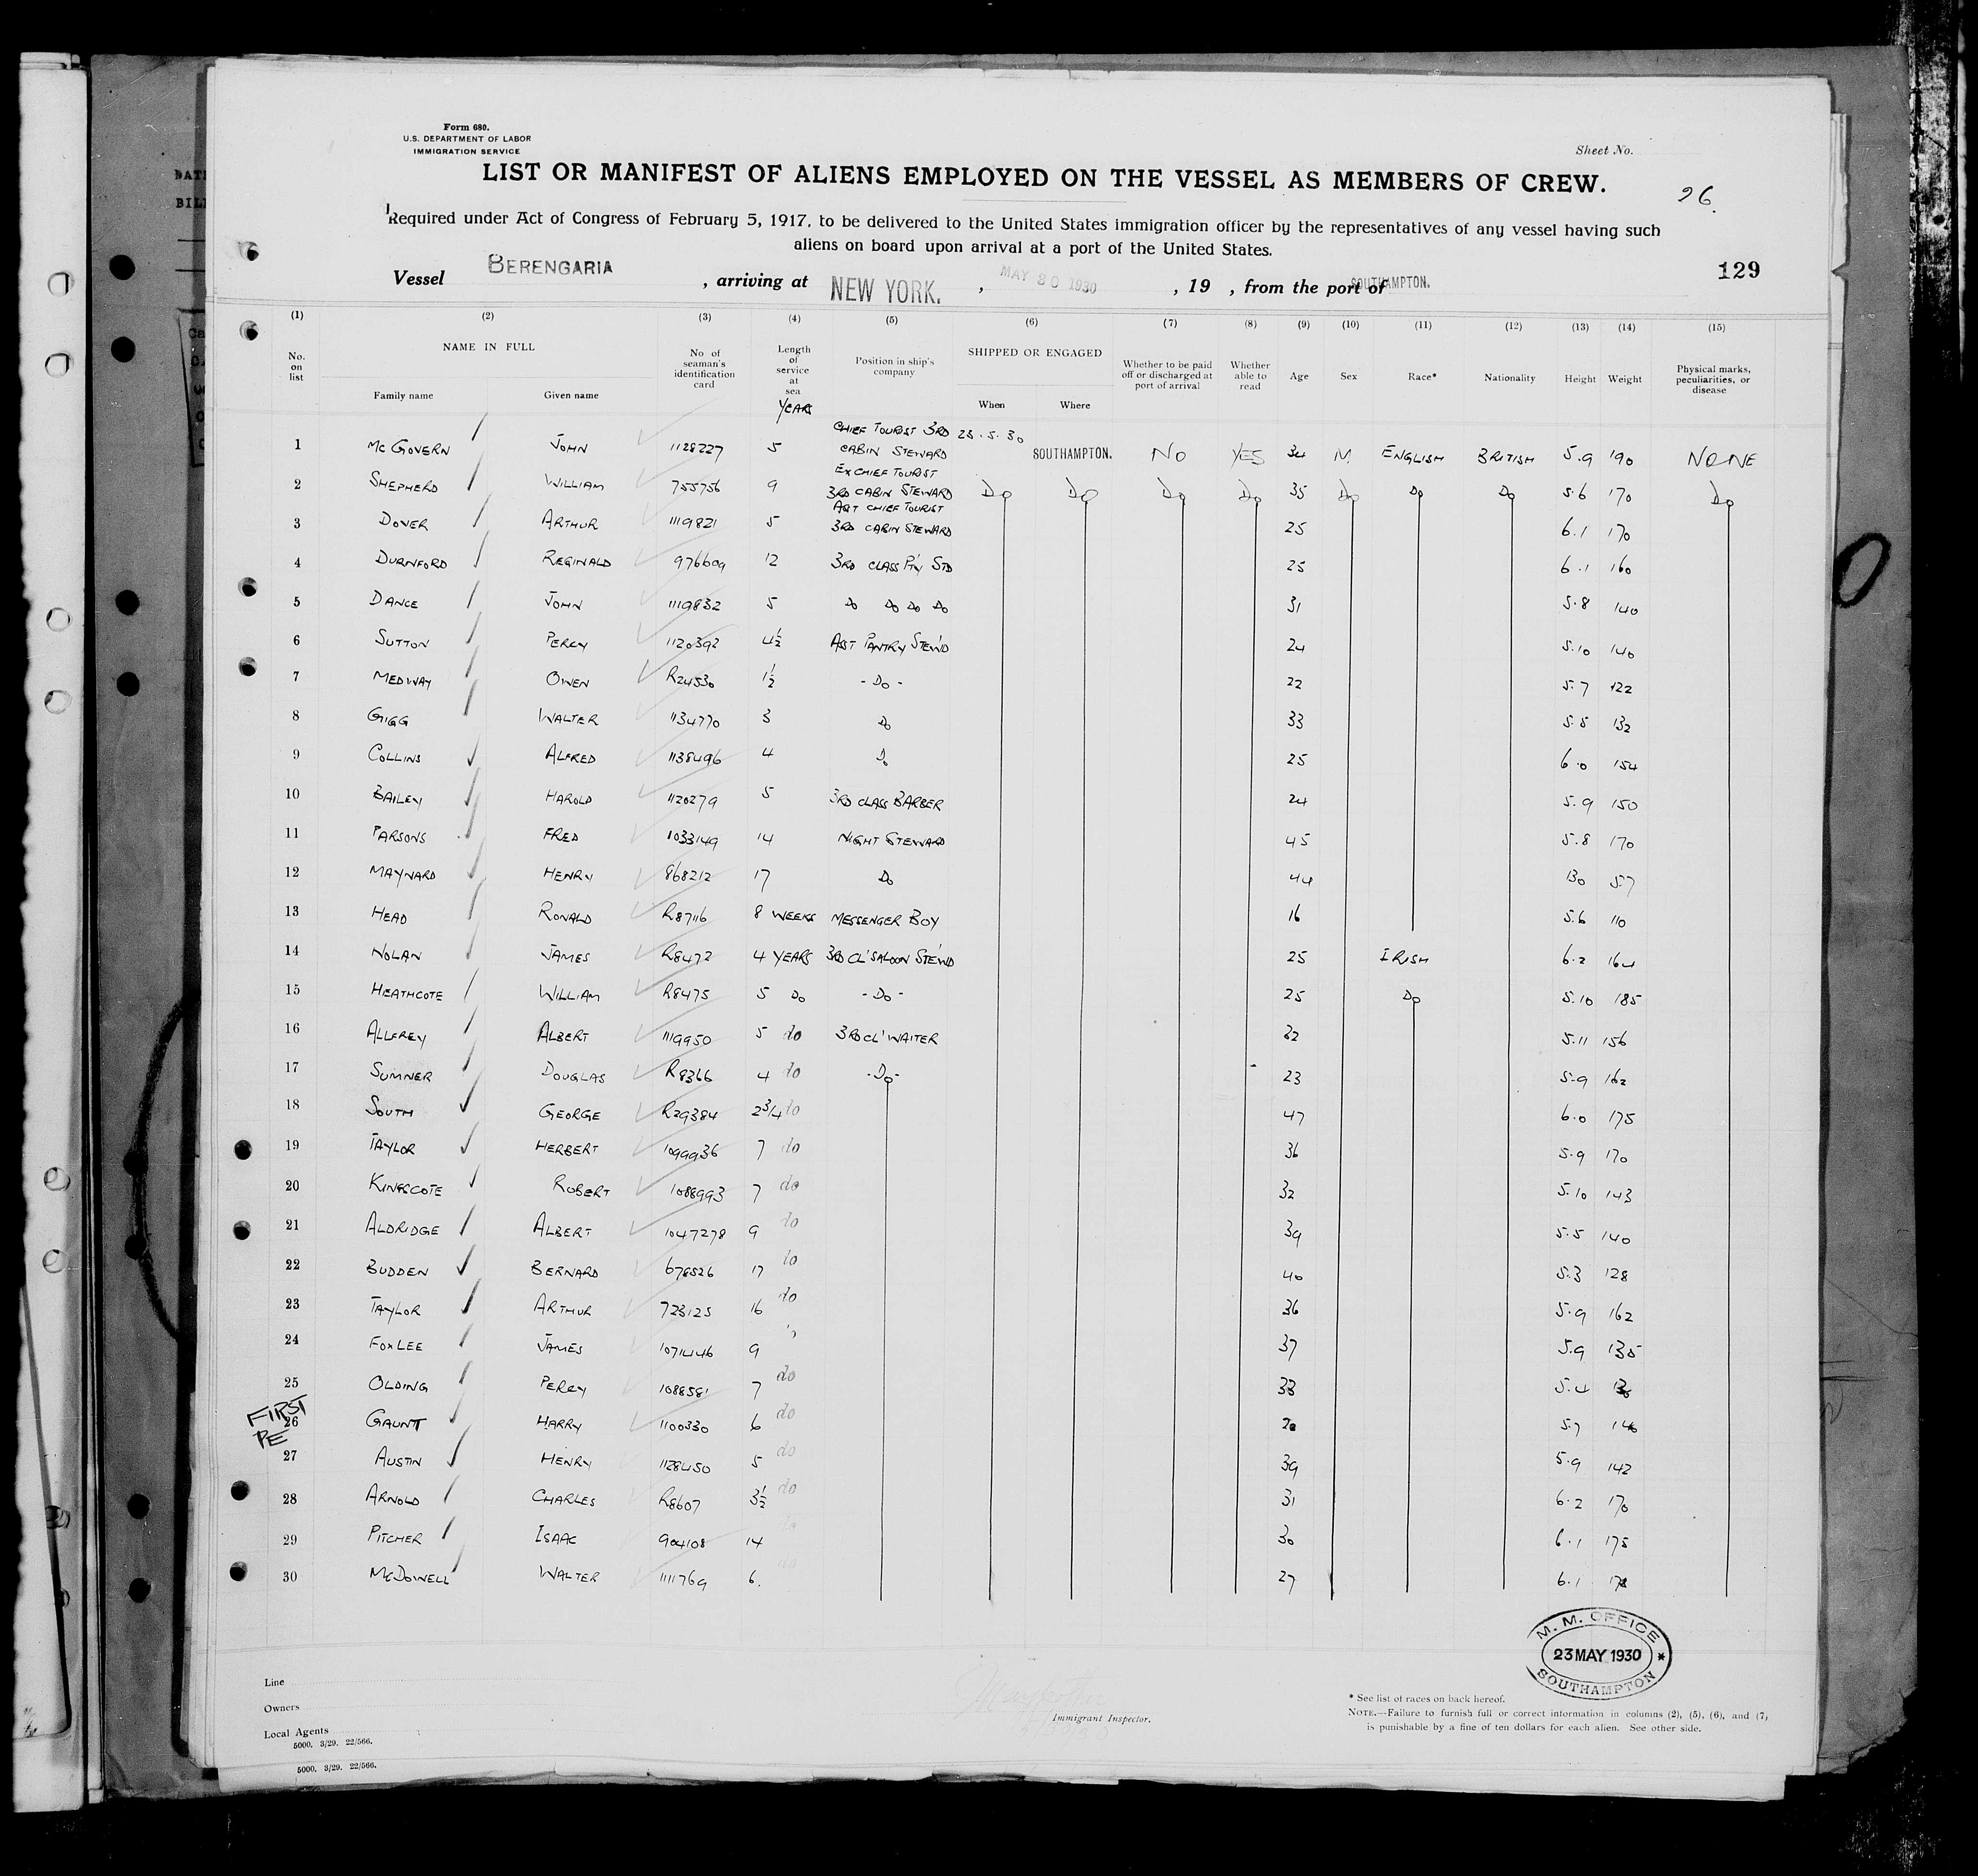 Form 680.
U.S. DEPARTMENT OF LABOR
IMMIGRATION SERVICE
Sheet No.
LIST OR MANIFEST OF ALIENS EMPLOYED ON THE VESSEL AS MEMBERS OF CREW.
26.
Required under Act of Congress of February 5, 1917, to be delivered to the United States immigration officer by the representatives of any vessel having such
aliens on board upon arrival at a port of the United States.
129
Vessel BERENGARIA, arriving at NEW YORK., MAY 30 1930, 19 , from the port of SOUTHAMPTON.
(1) (2) (3) (4) (5) (6) (7) (8) (9) (10) (11) (12) (13) (14) (15)
No. on list NAME IN FULL Family name Given name No of seaman's identification card Length of service at sea YEARS Position in ship's company SHIPPED OR ENGAGED When Where Whether to be paid off or discharged at port of arrival Whether able to read Age Sex Race* Nationality Height Weight Physical marks, peculiarities, or disease
1 McGOVERN JOHN 1128227 5 CHIEF TOURIST 3RD CABIN STEWARD 23.5.30 SOUTHAMPTON. NO YES 34 M. ENGLISH BRITISH 5.9 190 NONE
2 SHEPHERD WILLIAM 755756 9 EX CHIEF TOURIST 3RD CABIN STEWARD Do Do Do Do 35 Do Do Do 5.6 170 Do
3 DOVER ARTHUR 1119821 5 AST CHIEF TOURIST 3RD CABIN STEWARD 25 6.1 170
4 DURNFORD REGINALD 976609 12 3RD CLASS P'ty STD 25 6.1 160
5 DANCE JOHN 1119832 5 Do Do Do Do 31 5.8 140
6 SUTTON PERCY 1120392 4½ AST PANTRY STEW'D 24 5.10 140
7 MEDWAY OWEN R24530 1½ -Do- 22 5.7 122
8 GIGG WALTER 1134770 3 Do 33 5.5 132
9 COLLINS ALFRED 1138496 4 Do 25 6.0 154
10 BAILEY HAROLD 1120279 5 3RD CLASS BARBER 24 5.9 150
11 PARSONS FRED 1033149 14 NIGHT STEWARD 45 5.8 170
12 MAYNARD HENRY 868212 17 Do 44 130 5.7
13 HEAD RONALD R87116 8 WEEKS MESSENGER BOY 16 5.6 110
14 NOLAN JAMES R8472 4 YEARS 3RD CL' SALOON STEW'D 25 IRISH 6.2 164
15 HEATHCOTE WILLIAM R8475 5 Do -Do- 25 Do 5.10 185
16 ALLFREY ALBERT 1119950 5 do 3RD CL' WAITER 32 5.11 156
17 SUMNER DOUGLAS R8366 4 do -Do- 23 5.9 162
18 SOUTH GEORGE R29384 2¾ do 47 6.0 175
19 TAYLOR HERBERT 1099936 7 do 36 5.9 170
20 KINGSCOTE ROBERT 1088993 7 do 32 5.10 143
21 ALDRIDGE ALBERT 1047278 9 do 39 5.5 140
22 BUDDEN BERNARD 678526 17 do 40 5.3 128
23 TAYLOR ARTHUR 723125 16 do 36 5.9 162
24 FOXLEE JAMES 1071446 9 37 5.9 135
25 OLDING PERCY 1088581 7 do 33 5.4
FIRST
PE
26 GAUNTT HARRY 1100330 6 do 5.7
27 AUSTIN HENRY 1128450 5 do 39 5.9 142
28 ARNOLD CHARLES R8607 3½ do 31 6.2 170
29 PITCHER ISAAC 904108 14 do 30 6.1 175
30 McDOWELL WALTER 1111769 6. do 27 6.1
M. M. OFFICE
23 MAY 1930
SOUTHAMPTON
Line
Owners
Local Agents
5000. 3/29. 22/566.
Immigrant Inspector.
* See list of races on back hereof.
NOTE.—Failure to furnish full or correct information in columns (2), (5), (6), and (7)
is punishable by a fine of ten dollars for each alien. See other side.
5000. 3/29. 22/566.